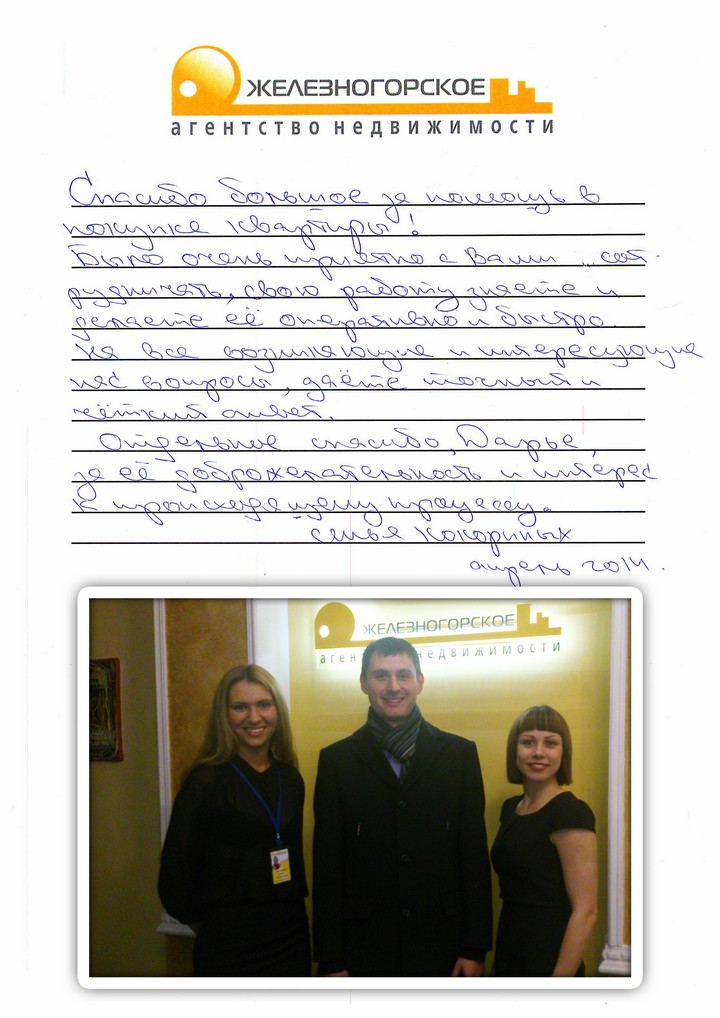 ЖЕЛЕЗНОГОРСКОЕ
агентство недвижимости
Спасибо большое за помощь в
покупке квартиры!
Было очень приятно с Вами сот-
рудничать, свою работу знаете и
делаете её оперативно и быстро.
На все возникающие и интересующие
нас вопросы, даёте точный и
чёткий ответ.
Отдельное спасибо, Дарье,
за её доброжелательность и интерес
к происходящему процессу.
семья Кокориных
апрель 2014.
ЖЕЛЕЗНОГОРСКОЕ
аген недвижимости